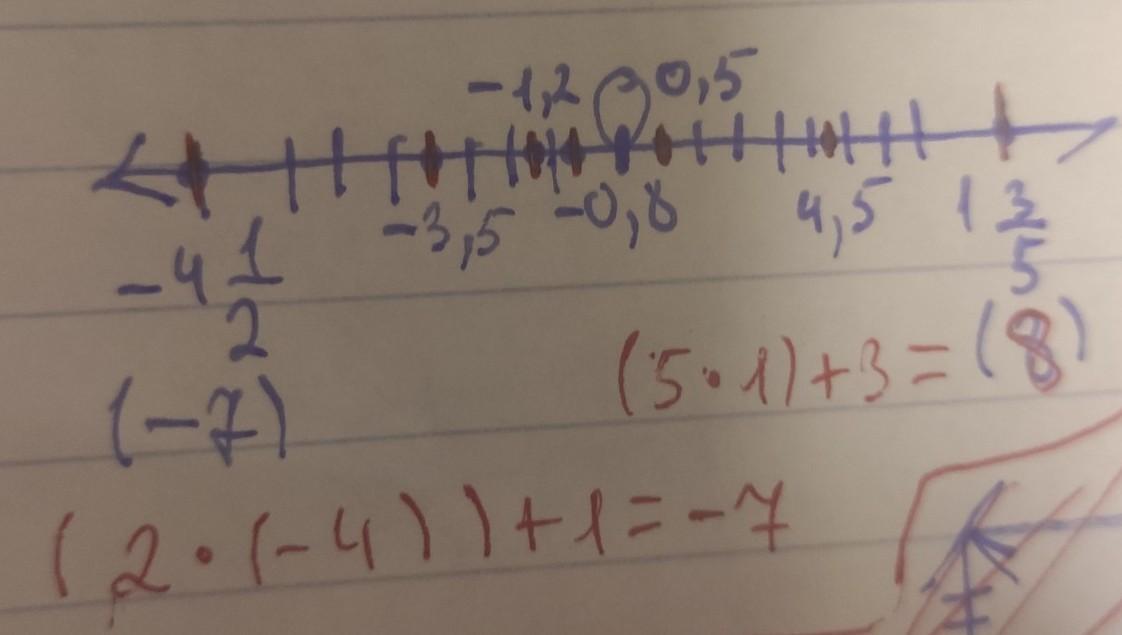 -1,2 0,5
-3,5 -0,8 4,5 1 3/5
-4 1/2
(8)
(5·1)+3=
(-7)
(2·(-4))+1=-7